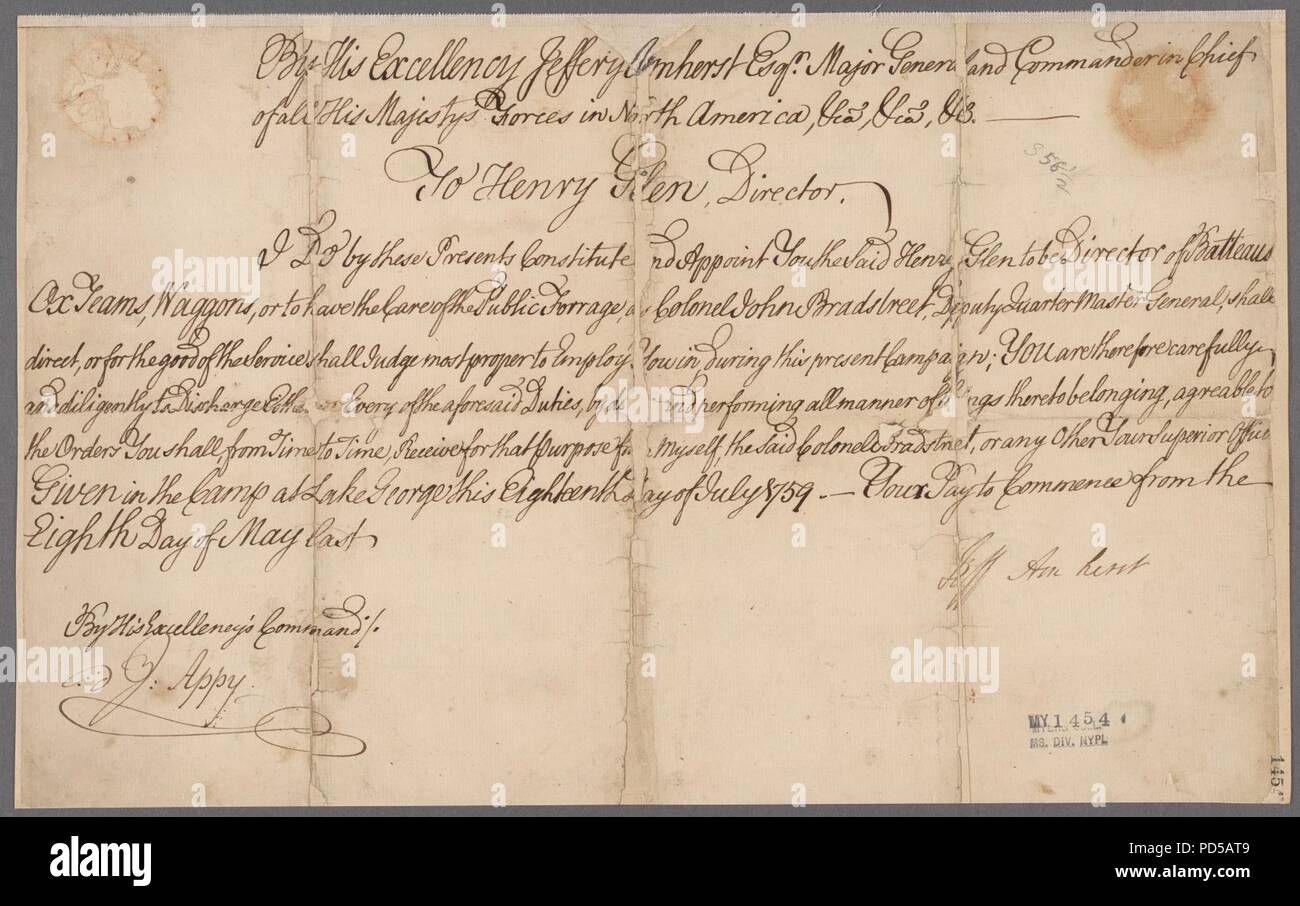 By His Excellency Jeffery Amherst Esqr. Major General and Commander in Chief
of all His Majestys Forces in North America, &ca, &ca, &c.
3 56 1/2
To Henry Glen, Director.
I Do by these Presents Constitute and Appoint You the Said Henry Glen to be Director of Batteaus
Ox Teams, Waggons, or to have the Care of the Public Forrage, as Colonel John Bradstreet, Deputy Quarter Master General, shall
direct, or for the good of the Service shall Judge most proper to Employ You in, during this present Campaign; You are therefore carefully
and diligently to Discharge Every of the aforesaid Duties, by and performing all manner of things thereto belonging, agreable to
the Orders You shall, from Time to Time, Receive for that Purpose from Myself, the Said Colonel Bradstreet, or any Other Your Superior Office
Given in the Camp at Lake George this Eighteenth Day of July 1759. — Your Pay to Commence from the
Eighth Day of May last
Jeff Amherst
By His Excellency's Command/.
J: Appy.
MY 1454
MYERS COLL.
MS. DIV. NYPL
145
alamy
alamy
Image ID: PD5AT9
www.alamy.com